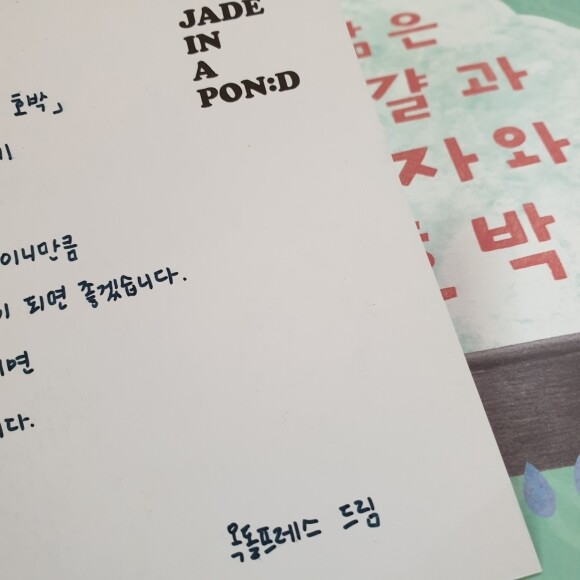 JADE
IN
A
PON:D
호박」
이니만큼
되면 좋겠습니다.
옥돌프레스 드림
삶은
과
자와
박